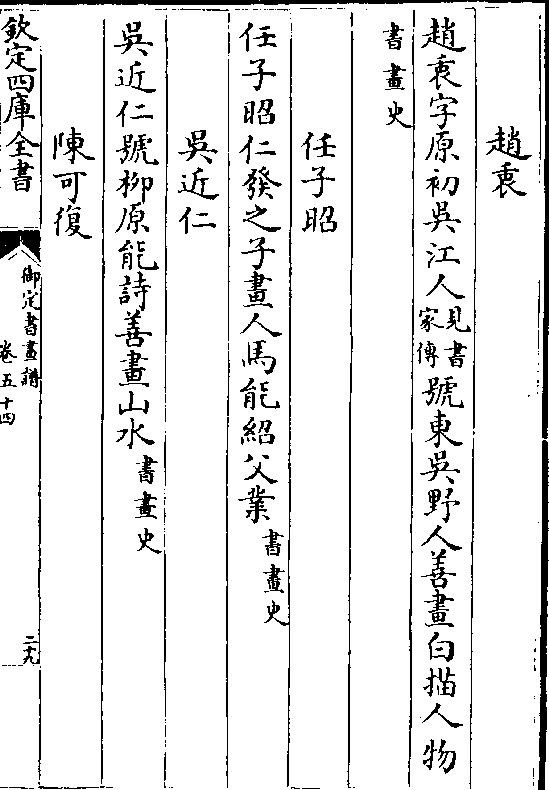 趙衷
趙衷字原初吳江人見書家傳號東吳野人善畫白描人物
書畫史
任子昭
任子昭仁發之子畫人馬能紹父業書畫史
吳近仁
吳近仁號柳原能詩善畫山水書畫史
陳可復
欽定四庫全書
御定書畫譜
卷五十四
二十九